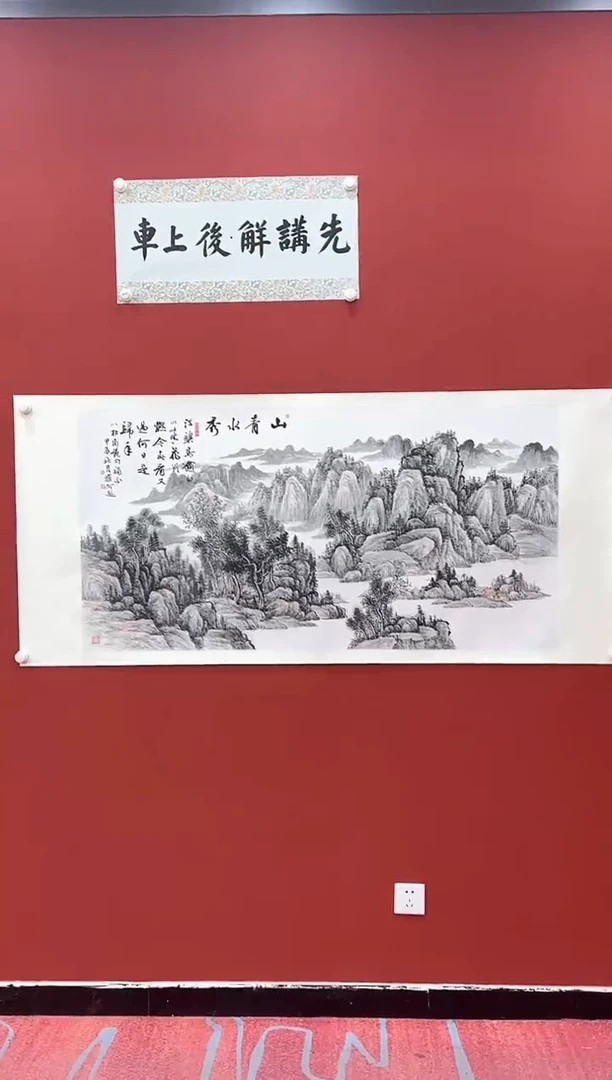 先講解後上車
山青水秀
江碧鳥逾白
山青花欲
燃今春看又
過何日是
歸年